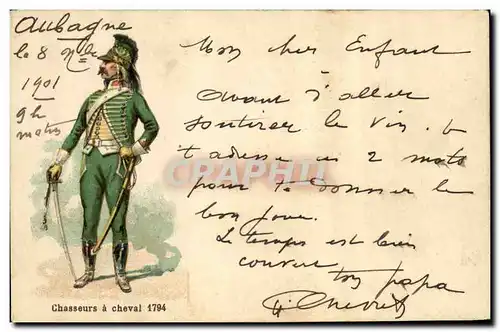 Aubagne
le 8 9bre
1901
9h
matin
Mon cher Enfant
avant d'aller
soutirer le vin. je
t'adresse ces 2 mots
pour te donner le
bon jour.
Le temps est bien
couvert
ton papa
CPRPHIL
Chasseurs à cheval 1794